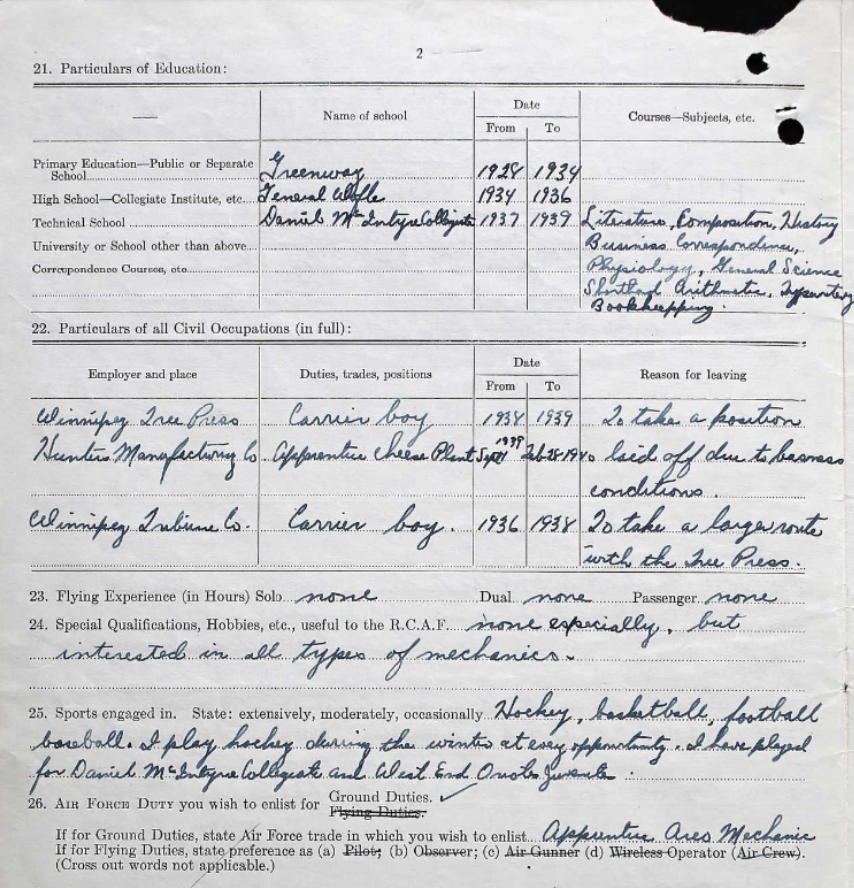 2
21. Particulars of Education:
— Name of school Date Courses—Subjects, etc.
From To
Primary Education—Public or Separate
School Greenway 1928 1934
High School—Collegiate Institute, etc. General Wolfe 1934 1936
Technical School Daniel McIntyre Collegiate 1937 1939 Literature, Composition, History
University or School other than above Business Correspondence,
Correspondence Courses, etc. Physiology, General Science
Shorthad Arithmetic, Typewriting
Bookkeepping.
22. Particulars of all Civil Occupations (in full):
Employer and place Duties, trades, positions Date Reason for leaving
From To
Winnipeg Free Press Carrier boy 1938 1939 To take a position
Hunters Manufacturing Co Apprentice Cheese Plant Sept 1939 Feb 28 1940 laid off due to business
conditions.
Winnipeg Tribune Co. Carrier boy. 1936 1938 To take a larger route
with the Free Press.
23. Flying Experience (in Hours) Solo none Dual none Passenger none
24. Special Qualifications, Hobbies, etc., useful to the R.C.A.F. none especially, but
interested in all types of mechanics.
25. Sports engaged in. State: extensively, moderately, occasionally Hockey, basketball, football
baseball. I play hockey during the winter at every opportunity. I have played
for Daniel McIntyre Collegiate and West End Juvenile.
26. AIR FORCE DUTY you wish to enlist for Ground Duties. ✓
Flying Duties.
If for Ground Duties, state Air Force trade in which you wish to enlist Apprentice Aero Mechanic
If for Flying Duties, state preference as (a) Pilot; (b) Observer; (c) Air Gunner (d) Wireless Operator (Air Crew).
(Cross out words not applicable.)